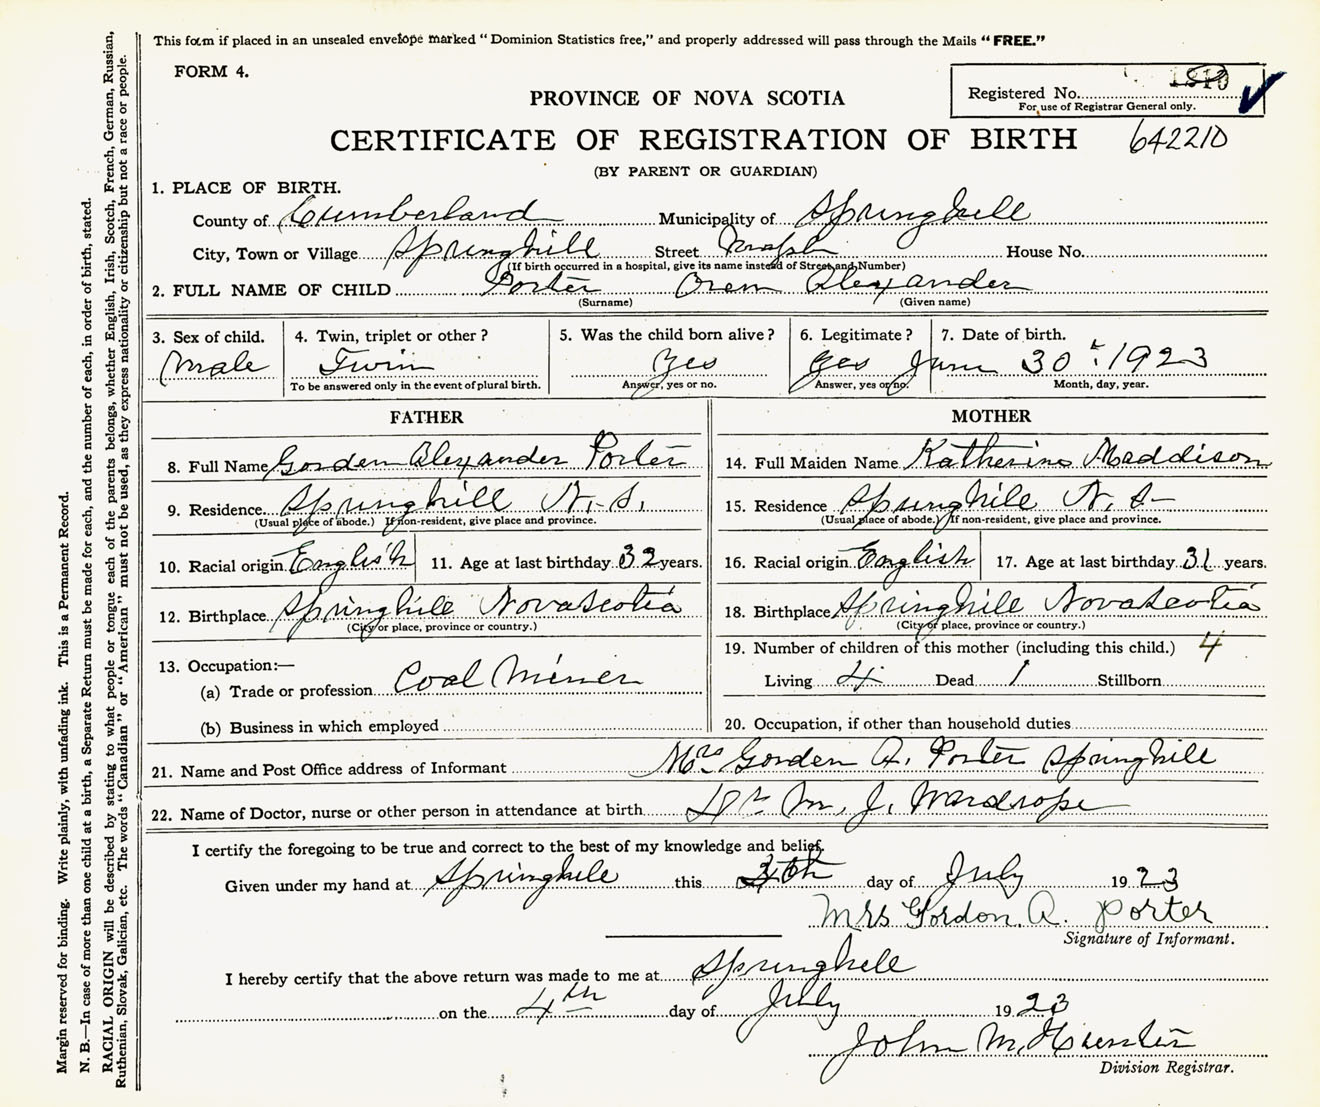 This form if placed in an unsealed envelope marked “ Dominion Statistics free,” and properly addressed will pass through the Mails “ FREE.”
FORM 4.
Registered No.
For use of Registrar General only.
PROVINCE OF NOVA SCOTIA
CERTIFICATE OF REGISTRATION OF BIRTH 642210
(BY PARENT OR GUARDIAN)
1. PLACE OF BIRTH.
County of Cumberland Municipality of Springhill
City, Town or Village Springhill Street Maple House No.
(If birth occurred in a hospital, give its name instead of Street and Number)
2. FULL NAME OF CHILD Porter Orem Alexander
(Surname) (Given name)
3. Sex of child. 4. Twin, triplet or other ? 5. Was the child born alive? 6. Legitimate ? 7. Date of birth.
Male Twin Yes Yes June 30th 1923
To be answered only in the event of plural birth. Answer, yes or no. Answer, yes or no. Month, day, year.
FATHER MOTHER
8. Full Name Gorden Alexander Porter 14. Full Maiden Name Katherine Maddison
9. Residence Springhill N. S. 15. Residence Springhill N. S
(Usual place of abode.) If non-resident, give place and province. (Usual place of abode.) If non-resident, give place and province.
10. Racial origin English 11. Age at last birthday 32 years. 16. Racial origin English 17. Age at last birthday 31 years.
12. Birthplace Springhill Nova Scotia 18. Birthplace Springhill Nova Scotia
(City or place, province or country.) (City or place, province or country.)
13. Occupation:— 19. Number of children of this mother (including this child.) 4
(a) Trade or profession Coal Miner Living 4 Dead 1 Stillborn
(b) Business in which employed 20. Occupation, if other than household duties
21. Name and Post Office address of Informant Mrs Gorden A. Porter Springhill
22. Name of Doctor, nurse or other person in attendance at birth Dr M. J. Wardrope
I certify the foregoing to be true and correct to the best of my knowledge and belief.
Given under my hand at Springhill this day of July 1923
Mrs Gordon. A. Porter
Signature of Informant.
I hereby certify that the above return was made to me at Springhill
on the 4th day of July 1923
John M. Hunter
Division Registrar.
Margin reserved for binding. Write plainly, with unfading ink. This is a Permanent Record.
N. B.—In case of more than one child at a birth, a Separate Return must be made for each, and the number of each, in order of birth, stated.
RACIAL ORIGIN will be described by stating to what people or tongue each of the parents belongs, whether English, Irish, Scotch, French, German, Russian,
Ruthenian, Slovak, Galician, etc. The words “ Canadian ” or “ American ” must not be used, as they express nationality or citizenship but not a race or people.